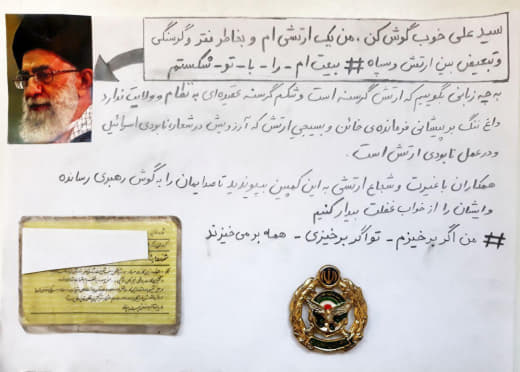 سید علی خوب گوش کن، من یک ارتشی ام و بخاطر فقر و گرسنگی
و تبعیض بین ارتش و سپاه # بیعت ام - را - با - تو - شکستم
به چه زبانی بگوییم که ارتش گرسنه است و شکم گرسنه عقیده ای به نظام و ولایت ندارد
داغ ننگ بر پیشانی فرمانده ی خائن و بسیجی ارتش که آرزویش در شعار نابودی اسرائیل
و در عمل نابودی ارتش است.
همکاران با غیرت و شجاع ارتشی به این کمپین بپیوندید تا صدایمان را به گوش رهبری رسانده
و ایشان را از خواب غفلت بیدار کنیم
# من اگر برخیزم - تو اگر برخیزی - همه بر می خیزند